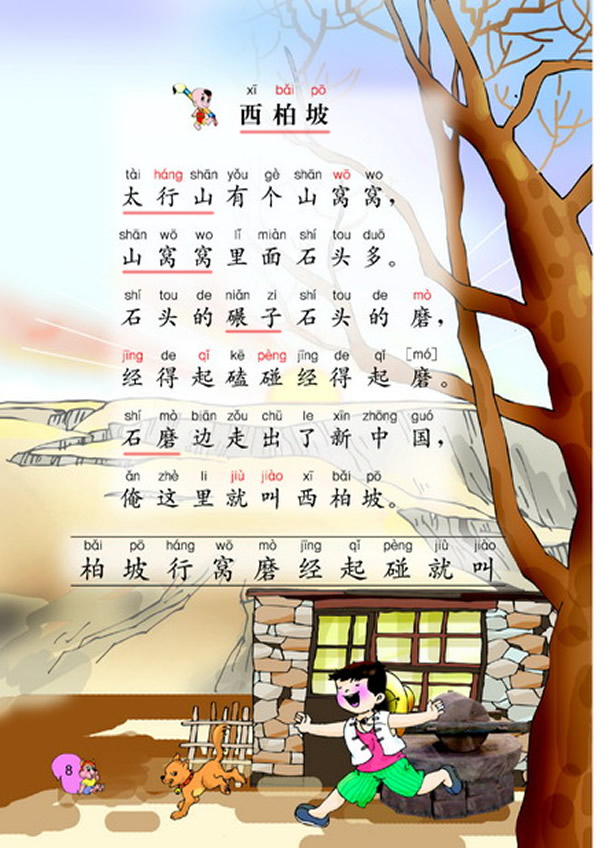 xī bǎi pō
西柏坡
tài háng shān yǒu gè shān wō wo
太行山有个山窝窝，
shān wō wo lǐ miàn shí tou duō
山窝窝里面石头多。
shí tou de niǎn zi shí tou de mò
石头的碾子石头的磨，
jīng de qǐ kē pèng jīng de qǐ [mó]
经得起磕碰经得起磨。
shí mò biān zǒu chū le xīn zhōng guó
石磨边走出了新中国，
ǎn zhè li jiù jiào xī bǎi pō
俺这里就叫西柏坡。
bǎi pō háng wō mò jīng qǐ pèng jiù jiào
柏坡行窝磨经起碰就叫
8